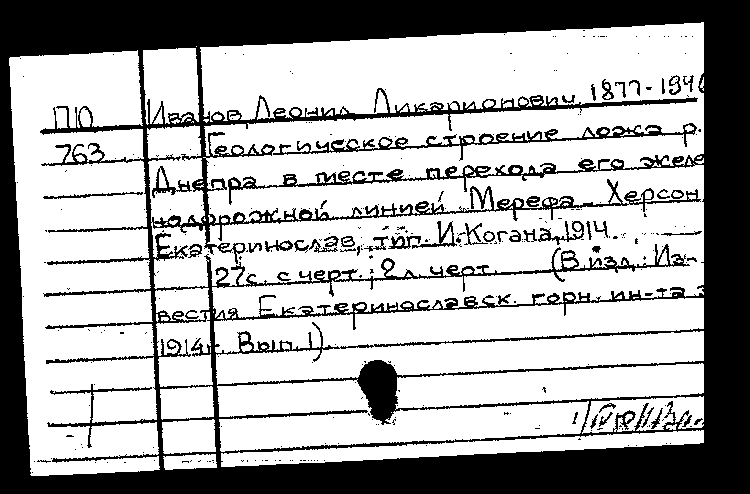 П10 Иванов, Леонид Ликарионович, 1877-194
763 Геологическое строение ложа р.
Днепра в месте перехода его желе
нодорожной линией Мерефа - Херсон
Екатеринослав, тип. И. Когана, 1914.
27с. с черт.; 2 л. черт. (В изд.: Из-
вестия Екатеринославск. горн. ин-та
1914г. Вып. 1).